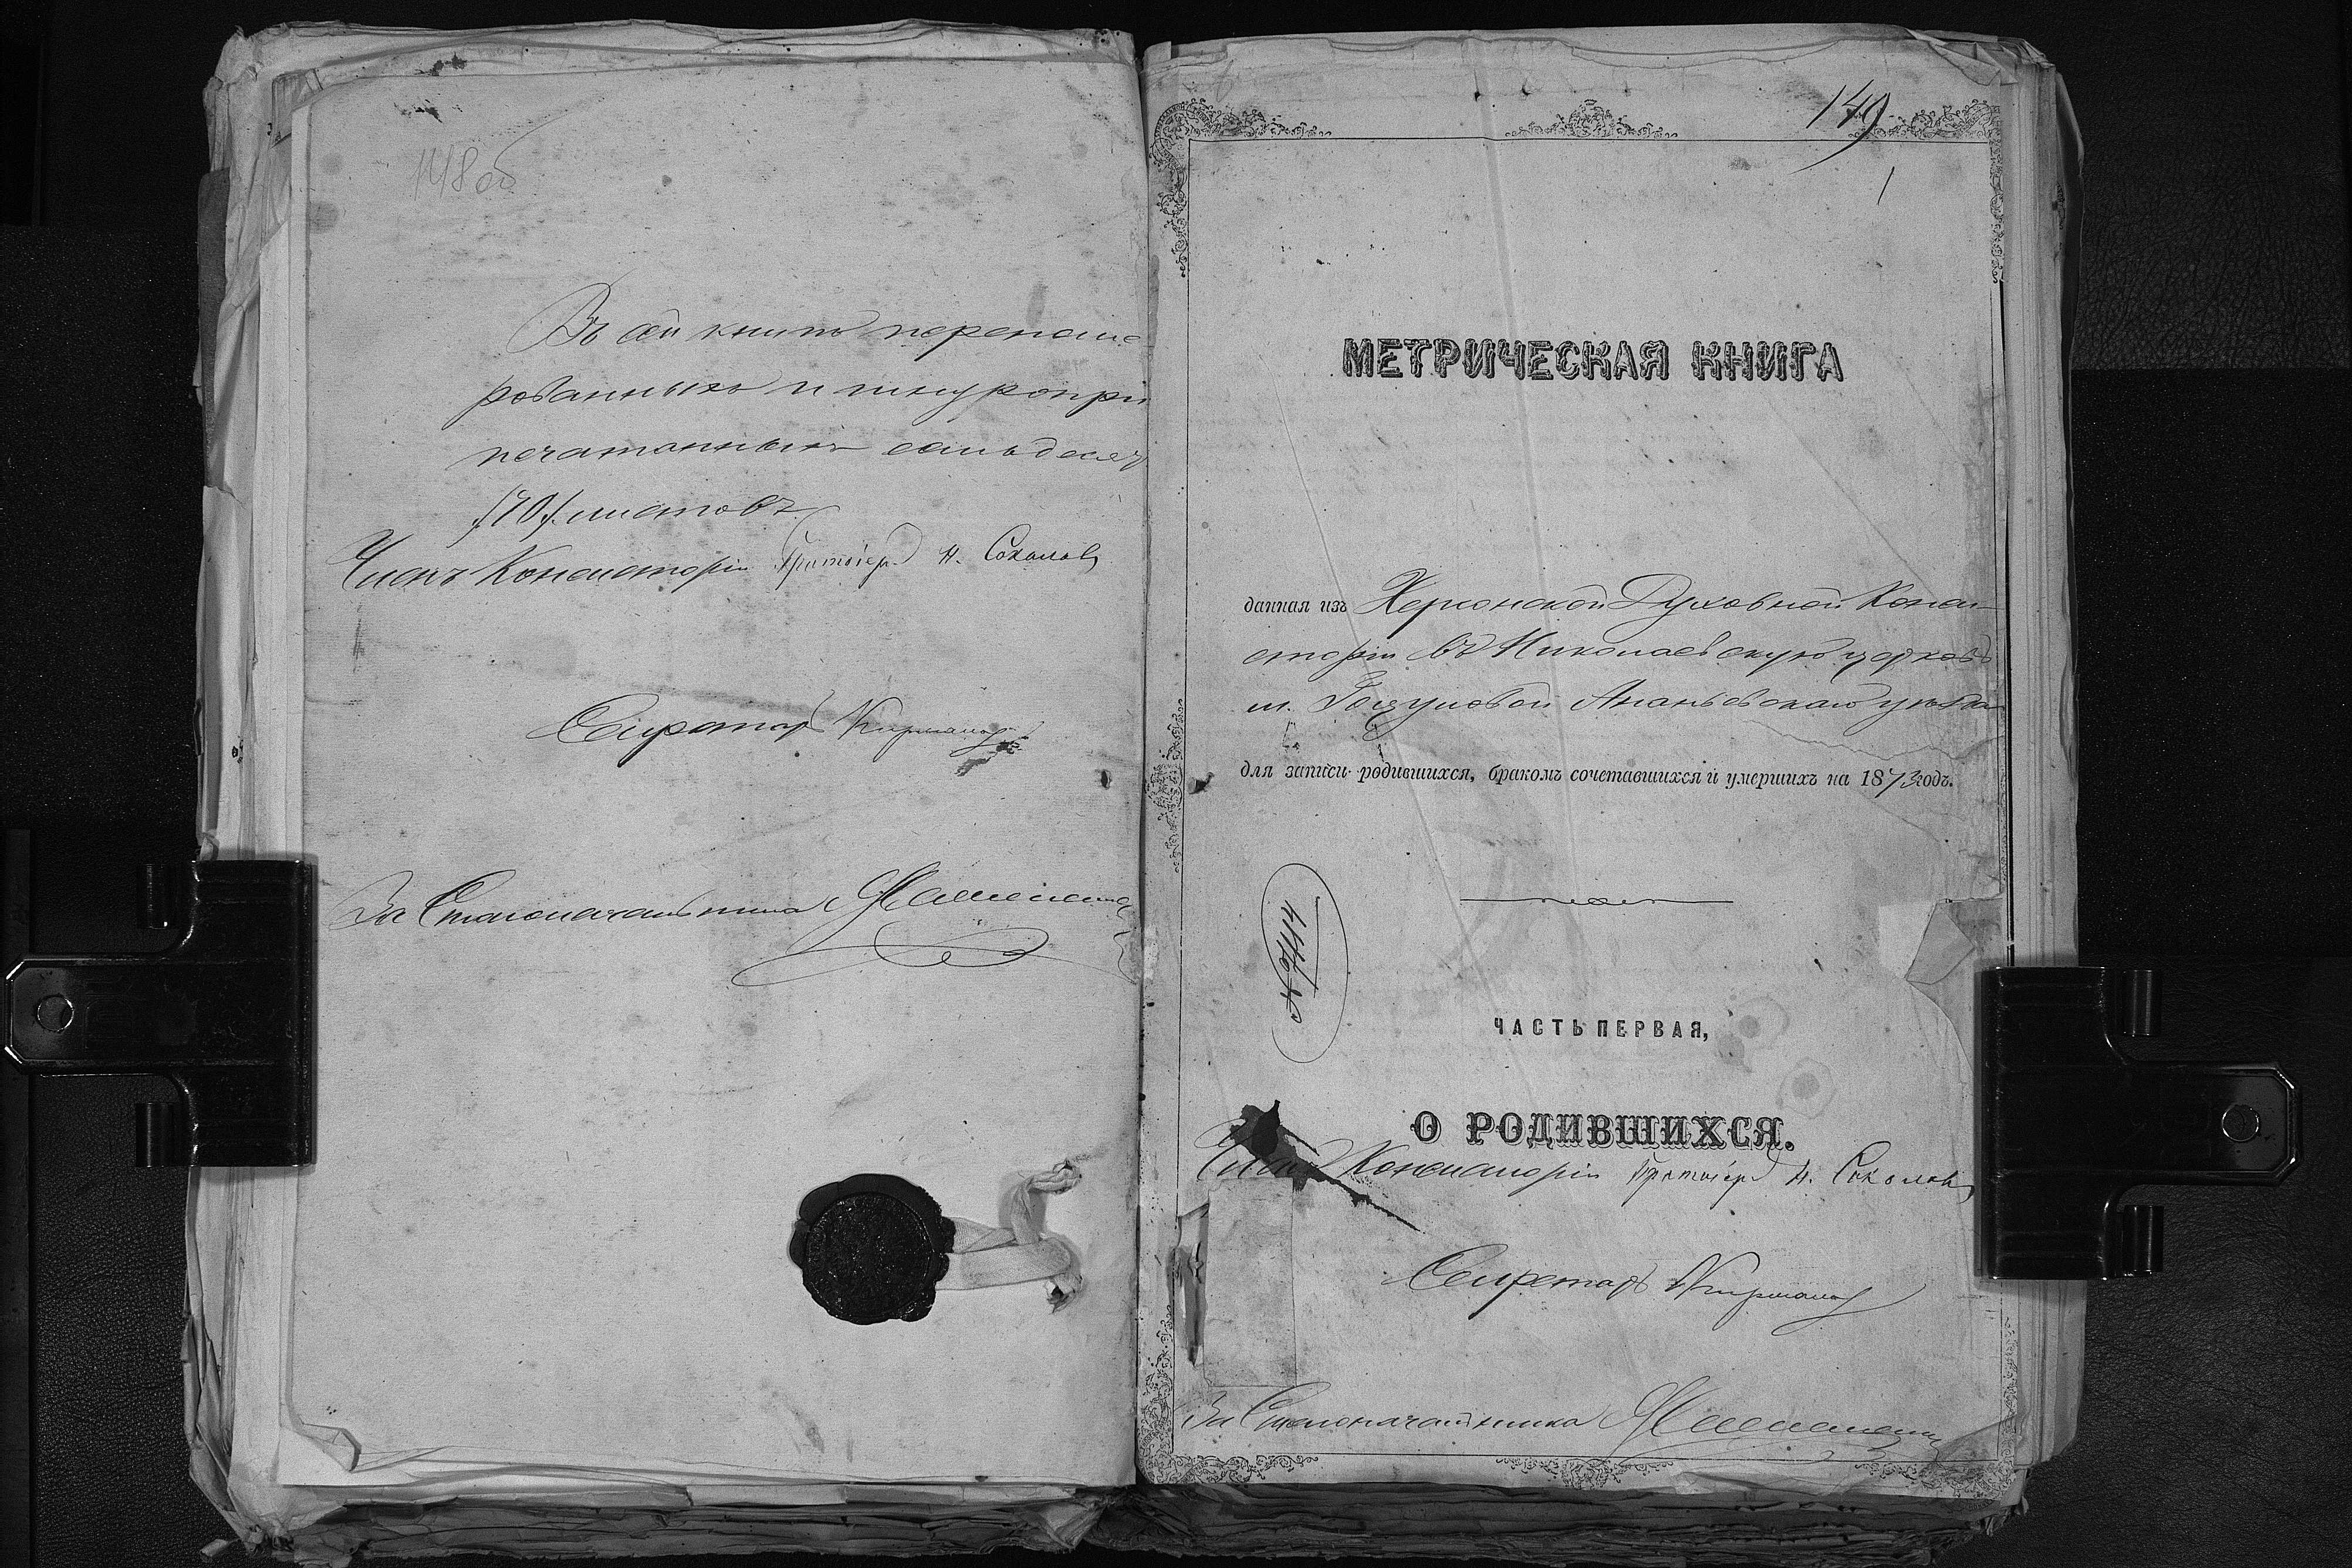 148 об
Въ сей книгѣ перенуме-
рованныхъ и шнуропри
печатанныхъ семьдесят
/70/. листовъ.
Членъ Консисторіи Протоіер. Н. Соколовъ
Секретарь
За Столоначальника
149
1
МЕТРИЧЕСКАЯ КНИГА
данная изъ Херсонской Духовной Конси-
сторіи въ Николаевскую церковь
м. Ананьевскаго уѣзда
для записи родившихся, бракомъ сочетавшихся и умершихъ на 1873 годъ.
№ 7414
ЧАСТЬ ПЕРВАЯ,
О РОДИВШИХСЯ.
Членъ Консисторіи Протоіер. Н. Соколовъ
Секретарь
За Столоначальника